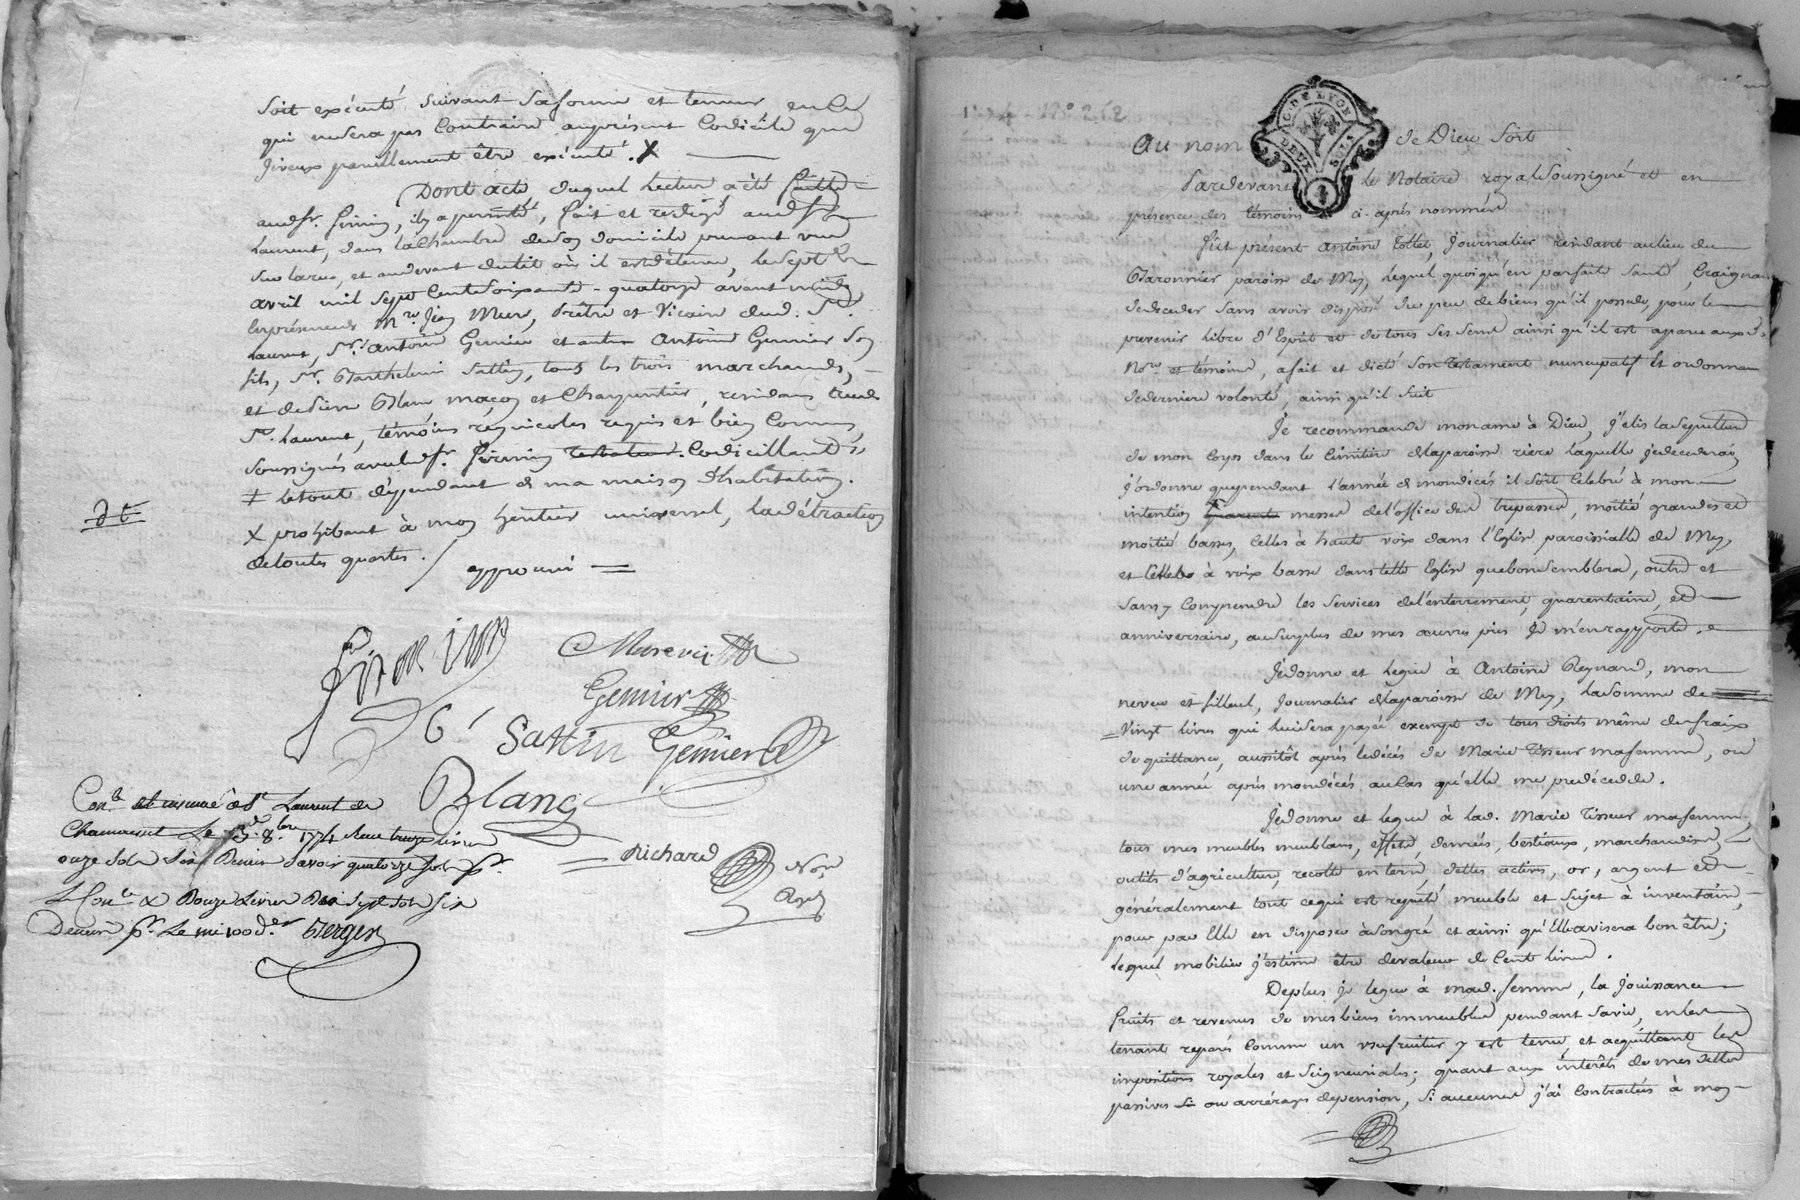 soit exécuté suivant sa forme et teneur en ce
qui ne sera pas contraire au présent codicile que
je veux pareillement être exécuté. X
Dont acte duquel lecture a été faitte
aud. sr. firmin, il y a persisté, fait et redigé aud. st
Laurent, dans la chambre de son domicile prenant vue
sur la rue, et au devant du lit où il est détenu, le sept
avril mil sept cent soixante-quatorze avant midy
les présences Mre. Jean Mure, Prêtre et Vicaire dud. St.
Laurent, Sr. Antoine Gemier et autre Antoine Gemier son
fils, Sr. Barthelemi Sattin, tous les trois marchands,
et de Pierre Blanc maçon et Charpentier, residans aud.
St. Laurent, témoins régnicoles requis et bien connus,
soussignés avec led. sr. firmin testateur. Codicillant
≠ le tout dépendant de ma maison d'habitation.
X prohibant à mon heritier universel, la détraction
de toutes quartes. / approuvé =
firmin
Mure vic.
Gemier
Sattin Gemier
Blanc
Richard
Nore
Royal
Conlé et insinué à St Laurent de
Chamousset Le 3. 8bre 1774 Reçu treize livres
onze sols six Deniers savoir quatorze sols pr.
Le Conle & Douze Livres Dix sept sols six
Deniers pr. Le mi 100 dr Berger
N° 262
G. DE LYON
DEUX SOLS
Au nom de Dieu soit
Pardevant le Notaire royal soussigné et en
présence des témoins ci-après nommés
fût présent Antoine Tollet, journalier residant au lieu du
Baronnier paroisse de Mey, lequel quoiqu'en parfaite santé, craignant
de deceder sans avoir disposé du peu de biens qu'il possede, pour le
prevenir libre d'Esprit et de tous ses sens ainsi qu'il est aparu auxd.
Nore et témoins, a fait et dicté son testament nuncupatif Et ordonnance
de derniere volonté, ainsi qu'il suit
Je recommande mon ame à Dieu, j'élis la sepulture
de mon corps dans le cimitiere de la paroisse riere laquelle je decederai,
j'ordonne que pendant l'année de mon décés il soit célébré à mon
intention quarente messes de l'office des trepassés, moitié grandes et
moitié basses, celles à haute voix dans l'Eglise paroissialle de Mey,
et celles à voix basse dans telle Eglise que bon semblera, outre et
sans y comprendre les services de l'enterrement, quarentaine, et
anniversaire, au surplus de mes œuvres pies je m'en rapporte.
Je donne et legue à Antoine Reynard, mon
neveu et filleul, journalier de la paroisse de Mey, la somme de
Vingt livres qui lui sera payée exempt de tous droits même de fraix
de quittance, aussitôt après le décés de Marie Tisseur ma femme, ou
une année après mon décés au cas qu'elle me predécede.
Je donne et legue à lad. Marie Tisseur ma femme
tous mes meubles meublans, effets, denrées, bestiaux, marchandises
outils d'agriculture, recolte en terre, dettes actives, or, argent et
généralement tout ce qui est reputé meuble et sujet à inventaire,
pour par Elle en disposer à son gré et ainsi qu'Elle avisera bon être;
lequel mobilier j'estime être de valeur de cent livres.
De plus je legue à mad. femme, la jouissance
fruits et revenus de mes biens immeubles pendant sa vie, en les
tenant reparés comme un usufruitier y est tenu et acquittant les
impositions royales et seigneuriales; quant aux intérêts de mes dettes
passives ou arrérages de pension, si aucunes j'ai contractées à mon